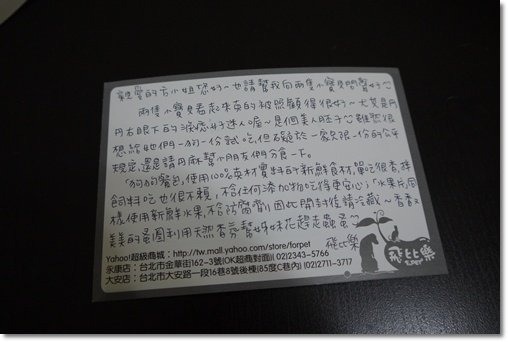 親愛的方小姐您好~也請幫我向兩隻小寶貝問聲好
兩隻小寶貝看起來真的被照顧得很好~尤其是丹
丹右眼下的淚痣好迷人喔~是個美人胚子 雖然很
想給她們一狗一份試吃,但礙於一家只限一份的公平
規定,還是請丹麻幫小朋友們分食一下。
「狗狗餐包」使用100%真材實料的新鮮食材,單吃很香,拌
飼料吃也很不賴,不含任何添加物吃得更安心;「水果片」同
樣使用新鮮水果,不含防腐劑因此開封後請冷藏~香香
美美的蚤圈利用天然香芬幫妹妹花趕走蟲蚤~
飛比樂
Yahoo!超級商城:http://tw.mall.yahoo.com/store/forpet
永康店:台北市金華街162-3號(OK超商對面)|(02)2343-5766
大安店:台北市大安路一段16巷8號後棟(85度C巷內)|(02)2711-3717
飛比樂